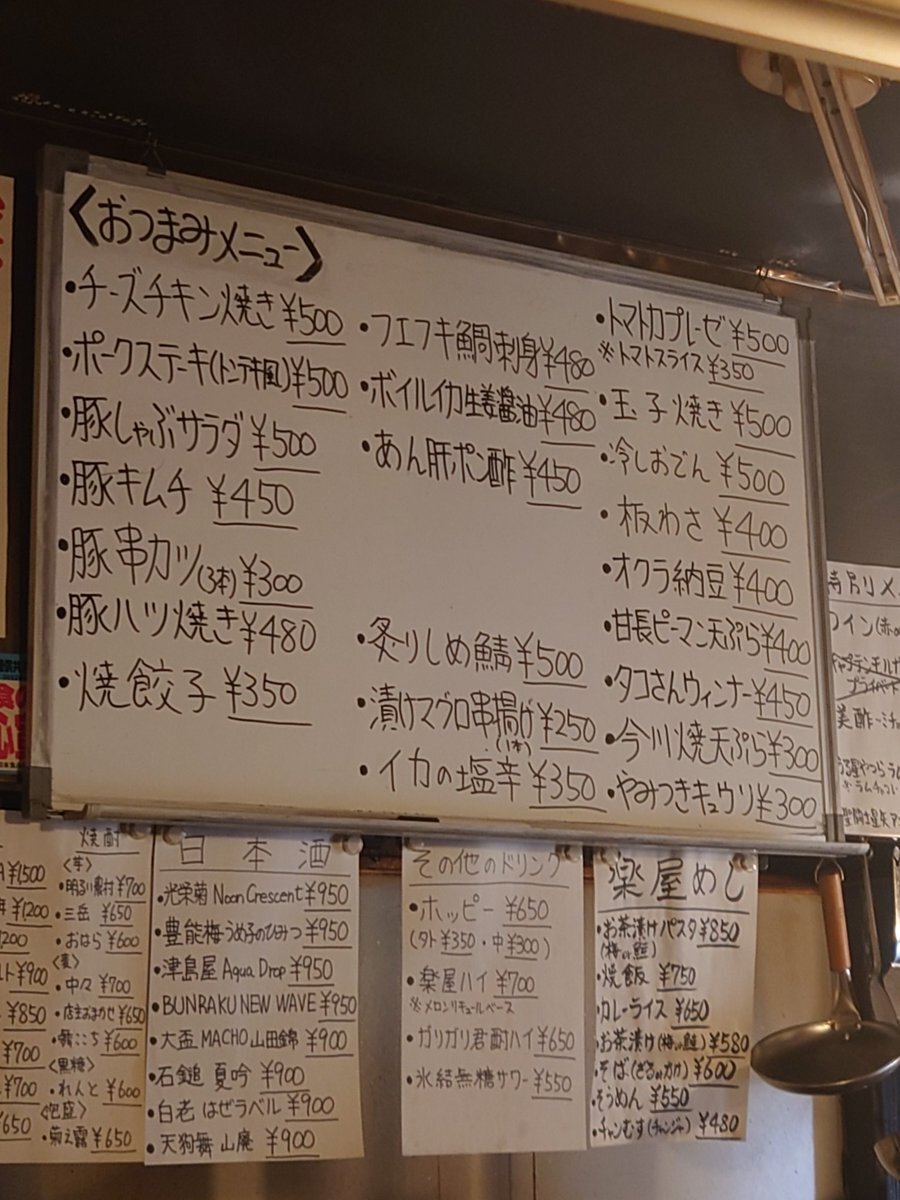 〈おつまみメニュー〉
・チーズチキン焼き ¥500
・ポークステーキ(トンテキ風) ¥500
・豚しゃぶサラダ ¥500
・豚キムチ ¥450
・豚串カツ(3本) ¥300
・豚ハツ焼き ¥480
・焼餃子 ¥350
・フエフキ鯛刺身 ¥480
・ボイルイカ生姜醤油 ¥480
・あん肝ポン酢 ¥450
・炙りしめ鯖 ¥500
・漬けマグロ串揚げ(1本) ¥250
・イカの塩辛 ¥350
・トマトカプレーゼ ¥500
※トマトスライス ¥350
・玉子焼き ¥500
・冷しおでん ¥500
・板わさ ¥400
・オクラ納豆 ¥400
・甘長ピーマン天ぷら ¥400
・タコさんウィンナー ¥450
・今川焼天ぷら ¥300
・やみつきキュウリ ¥300
¥1500
¥1200
¥900
¥850
¥700
焼酎
〈芋〉
・明るい農村 ¥700
・三岳 ¥650
・おはら ¥600
〈麦〉
・中々 ¥700
・店主おまかせ ¥650
・舞ここち ¥600
〈黒糖〉
・れんと ¥600
〈泡盛〉
・菊之露 ¥650
日本酒
・光栄菊 Noon Crescent ¥950
・豊能梅 うめ子のひみつ ¥950
・津島屋 Aqua Drop ¥950
・BUNRAKU NEW WAVE ¥950
・大盃 MACHO 山田錦 ¥900
・石鎚 夏吟 ¥900
・白老 はぜラベル ¥900
・天狗舞 山廃 ¥900
その他のドリンク
・ホッピー ¥650
(外 ¥350・中 ¥300)
・楽屋ハイ ¥700
※メロンリキュールベース
・ガリガリ君酎ハイ ¥650
・氷結無糖サワー ¥550
楽屋めし
・お茶漬けパスタ ¥850
(梅or鮭)
・焼飯 ¥750
・カレーライス ¥650
・お茶漬け(梅or鮭) ¥580
・そば(ざるorかけ) ¥600
・そうめん ¥550
・チャンむす(チャンジャ) ¥480
ワイン(赤
プライベート
美酢